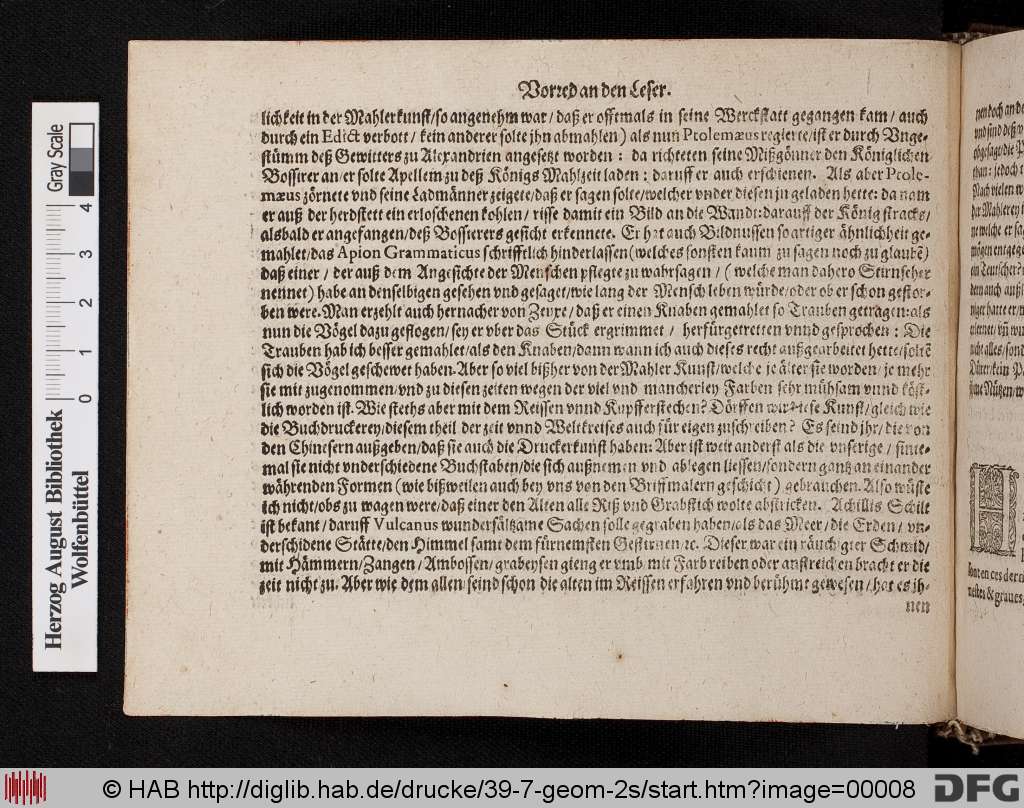 Vorred an den Leser.
lichkeit in der Mahlerkunst/ so angenehm war / daß er offtmals in seine Werckstatt gegangen kam / auch
durch ein Edict verbott / kein anderer solte jhn abmahlen) als nun Ptolemæus regierte/ ist er durch Vnge-
stümm deß Gewitters zu Alexandrien angesetzt worden : da richteten seine Mißgönner den Königlichen
Bossirer an/ er solte Apellem zu deß Königs Mahlzeit laden : daruff er auch erschienen. Als aber Ptole-
mæus zörnete vnd seine Ladmänner zeigete/ daß er sagen solte/ welcher vnder diesen jn geladen hette: da nam
er auß der herdstett ein erloschenen kohlen / risse damit ein Bild an die Wandt: darauff der König stracks/
alsbald er angefangen/ deß Bossierers gesicht erkennete. Er hat auch Bildnussen so artiger ähnlichheit ge-
mahlet/ das Apion Grammaticus schrifftlich hinderlassen (welches sonsten kaum zu sagen noch zu glaubē)
daß einer / der auß dem Angesichte der Menschen pflegte zu wahrsagen / ( welche man dahero Stirnseher
nennet) habe an denselbigen gesehen vnd gesaget/ wie lang der Mensch leben würde/ oder ob er schon gestor-
ben were. Man erzehlt auch hernacher von Zeuxe / daß er einen Knaben gemahlet so Trauben getragen: als
nun die Vögel dazu geflogen / sey er vber das Stück ergrimmet / herfürgetretten vnnd gesprochen : Die
Trauben hab ich besser gemahlet/ als den Knaben/ dann wann ich auch dieses recht außgearbeitet hette/ soltē
sich die Vögel geschewet haben. Aber so viel bißher von der Mahler Kunst/ welche je älter sie worden/ je mehr
sie mit zugenommen/ vnd zu diesen zeiten wegen der viel vnd mancherley Farben sehr mühsam vnnd köst-
lich worden ist. Wie steths aber mit dem Reissen vnnd Kupfferstechen? Dörffen wir diese Kunst/ gleich wie
die Buchdruckerey/ diesem theil der zeit vnnd Weltkreises auch für eigen zuschreiben? Es seind jhr/ die von
den Chinesern außgeben/ daß sie auch die Druckerkunst haben: Aber ist weit anderst als die vnserige / sinte-
mal sie nicht vnderschiedene Buchstaben/ die sich außnemen vnd ablegen liessen/ sondern gantz an einander
währenden Formen (wie bißweilen auch bey vns von den Briffmalern geschicht) gebrauchen. Also wüste
ich nicht/ obs zu wagen were/ daß einer den Alten alle Riß vnd Grabstich wolte abstricken. Achillis Schilt
ist bekant / daruff Vulcanus wundersältzame Sachen solle gegraben haben/ als das Meer/ die Erden / vn-
derschidene Stätte/ den Himmel samt dem fürnemsten Gestirnen ꝛc. Dieser war ein räuchigter Schmid/
mit Hämmern/ Zangen / Ambossen/ grabeysen gieng er vmb mit Farb reiben oder anstreichen bracht er die
zeit nicht zu. Aber wie dem allen/ seind schon die alten im Reissen erfahren vnd berühmt gewesen/ hat es jh-
nen
Gray Scale
0 1 2 3 4
Herzog August Bibliothek
Wolfenbüttel
© HAB http://diglib.hab.de/drucke/39-7-geom-2s/start.htm?image=00008
DFG